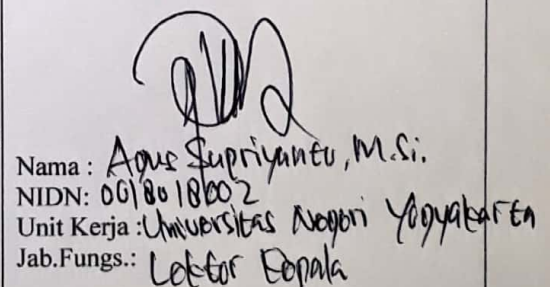 Nama : Agus Supriyanto, M.Si.
NIDN: 0018018002
Unit Kerja : Universitas Negeri Yogyakarta
Jab.Fungs.: Lektor Kepala